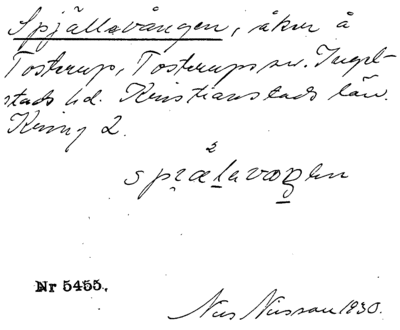 Spjällavången, åker å
Tosterup, Tosterups sn. Ingel-
stads hd. Kristianstads län.
Kring 2.
Nr 5455.
Nils Nilsson 1930.